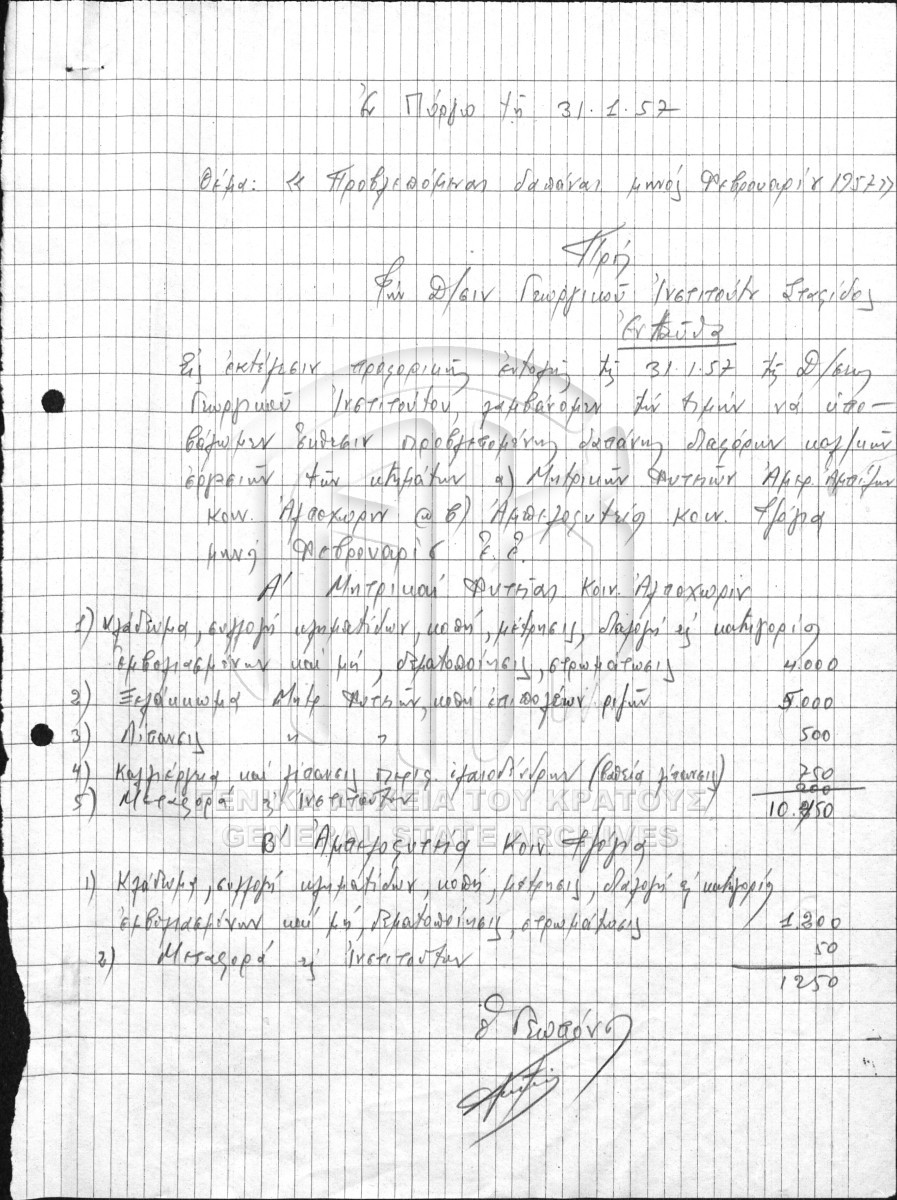 Ἐν Πύργῳ τῇ 31.1.57
Θέμα: « Προβλεπόμεναι δαπάναι μηνός Φεβρουαρίου 1957 »
Πρός
Τήν Δ/σιν Γεωργικοῦ Ἰνστιτούτου Σταφίδος
Ἐνταῦθα
Εἰς ἐκτέλεσιν προφορικῆς ἐντολῆς τῆς 31.1.57 τῆς Δ/σεως
Γεωργικοῦ Ἰνστιτούτου, λαμβάνομεν τήν τιμήν νά ὑπο-
βάλωμεν ἔκθεσιν προβλεπομένης δαπάνης διαφόρων καλ/κῶν
ἐργασιῶν τῶν κτημάτων α) Μητρικῶν Φυτειῶν Ἀμερ. Ἀμπέλων
κοιν. Ἀλποχωρίου β) Ἀμπελοφυτεία κοιν.
μηνός Φεβρουαρίου ἔ. ἔ.
Α' Μητρικαί Φυτεῖαι Κοιν. Ἀλποχωρίου
1) Κλάδευμα, συλλογή κληματίδων, κοπή, μέτρησις, διαλογή εἰς κατηγορίας
ἐμβολιασμένων καί μή, δεματοποίησις, στρωμάτωσις 4.000
2) Ξελάκκωμα Μητρ. Φυτειῶν, κοπή ἐπιπολαίων ριζῶν 5.000
3) Λίπανσις " " 500
4) Καλλιέργεια καί λίπανσις περις. ἐλαιοδένδρων (βαθεῖα λίπανσις) 750
5) Μεταφορά εἰς Ἰνστιτούτον 200
10.450
ΓΕΝΙΚΑ ΑΡΧΕΙΑ ΤΟΥ ΚΡΑΤΟΥΣ
GENERAL STATE ARCHIVES
Β' Ἀμπελοφυτεία Κοιν.
1) Κλάδευμα, συλλογή κληματίδων, κοπή, μέτρησις, διαλογή εἰς κατηγορίας
ἐμβολιασμένων καί μή, δεματοποίησις, στρωμάτωσις 1.200
2) Μεταφορά εἰς Ἰνστιτούτον 50
1250
Ὁ Γεωπόνος